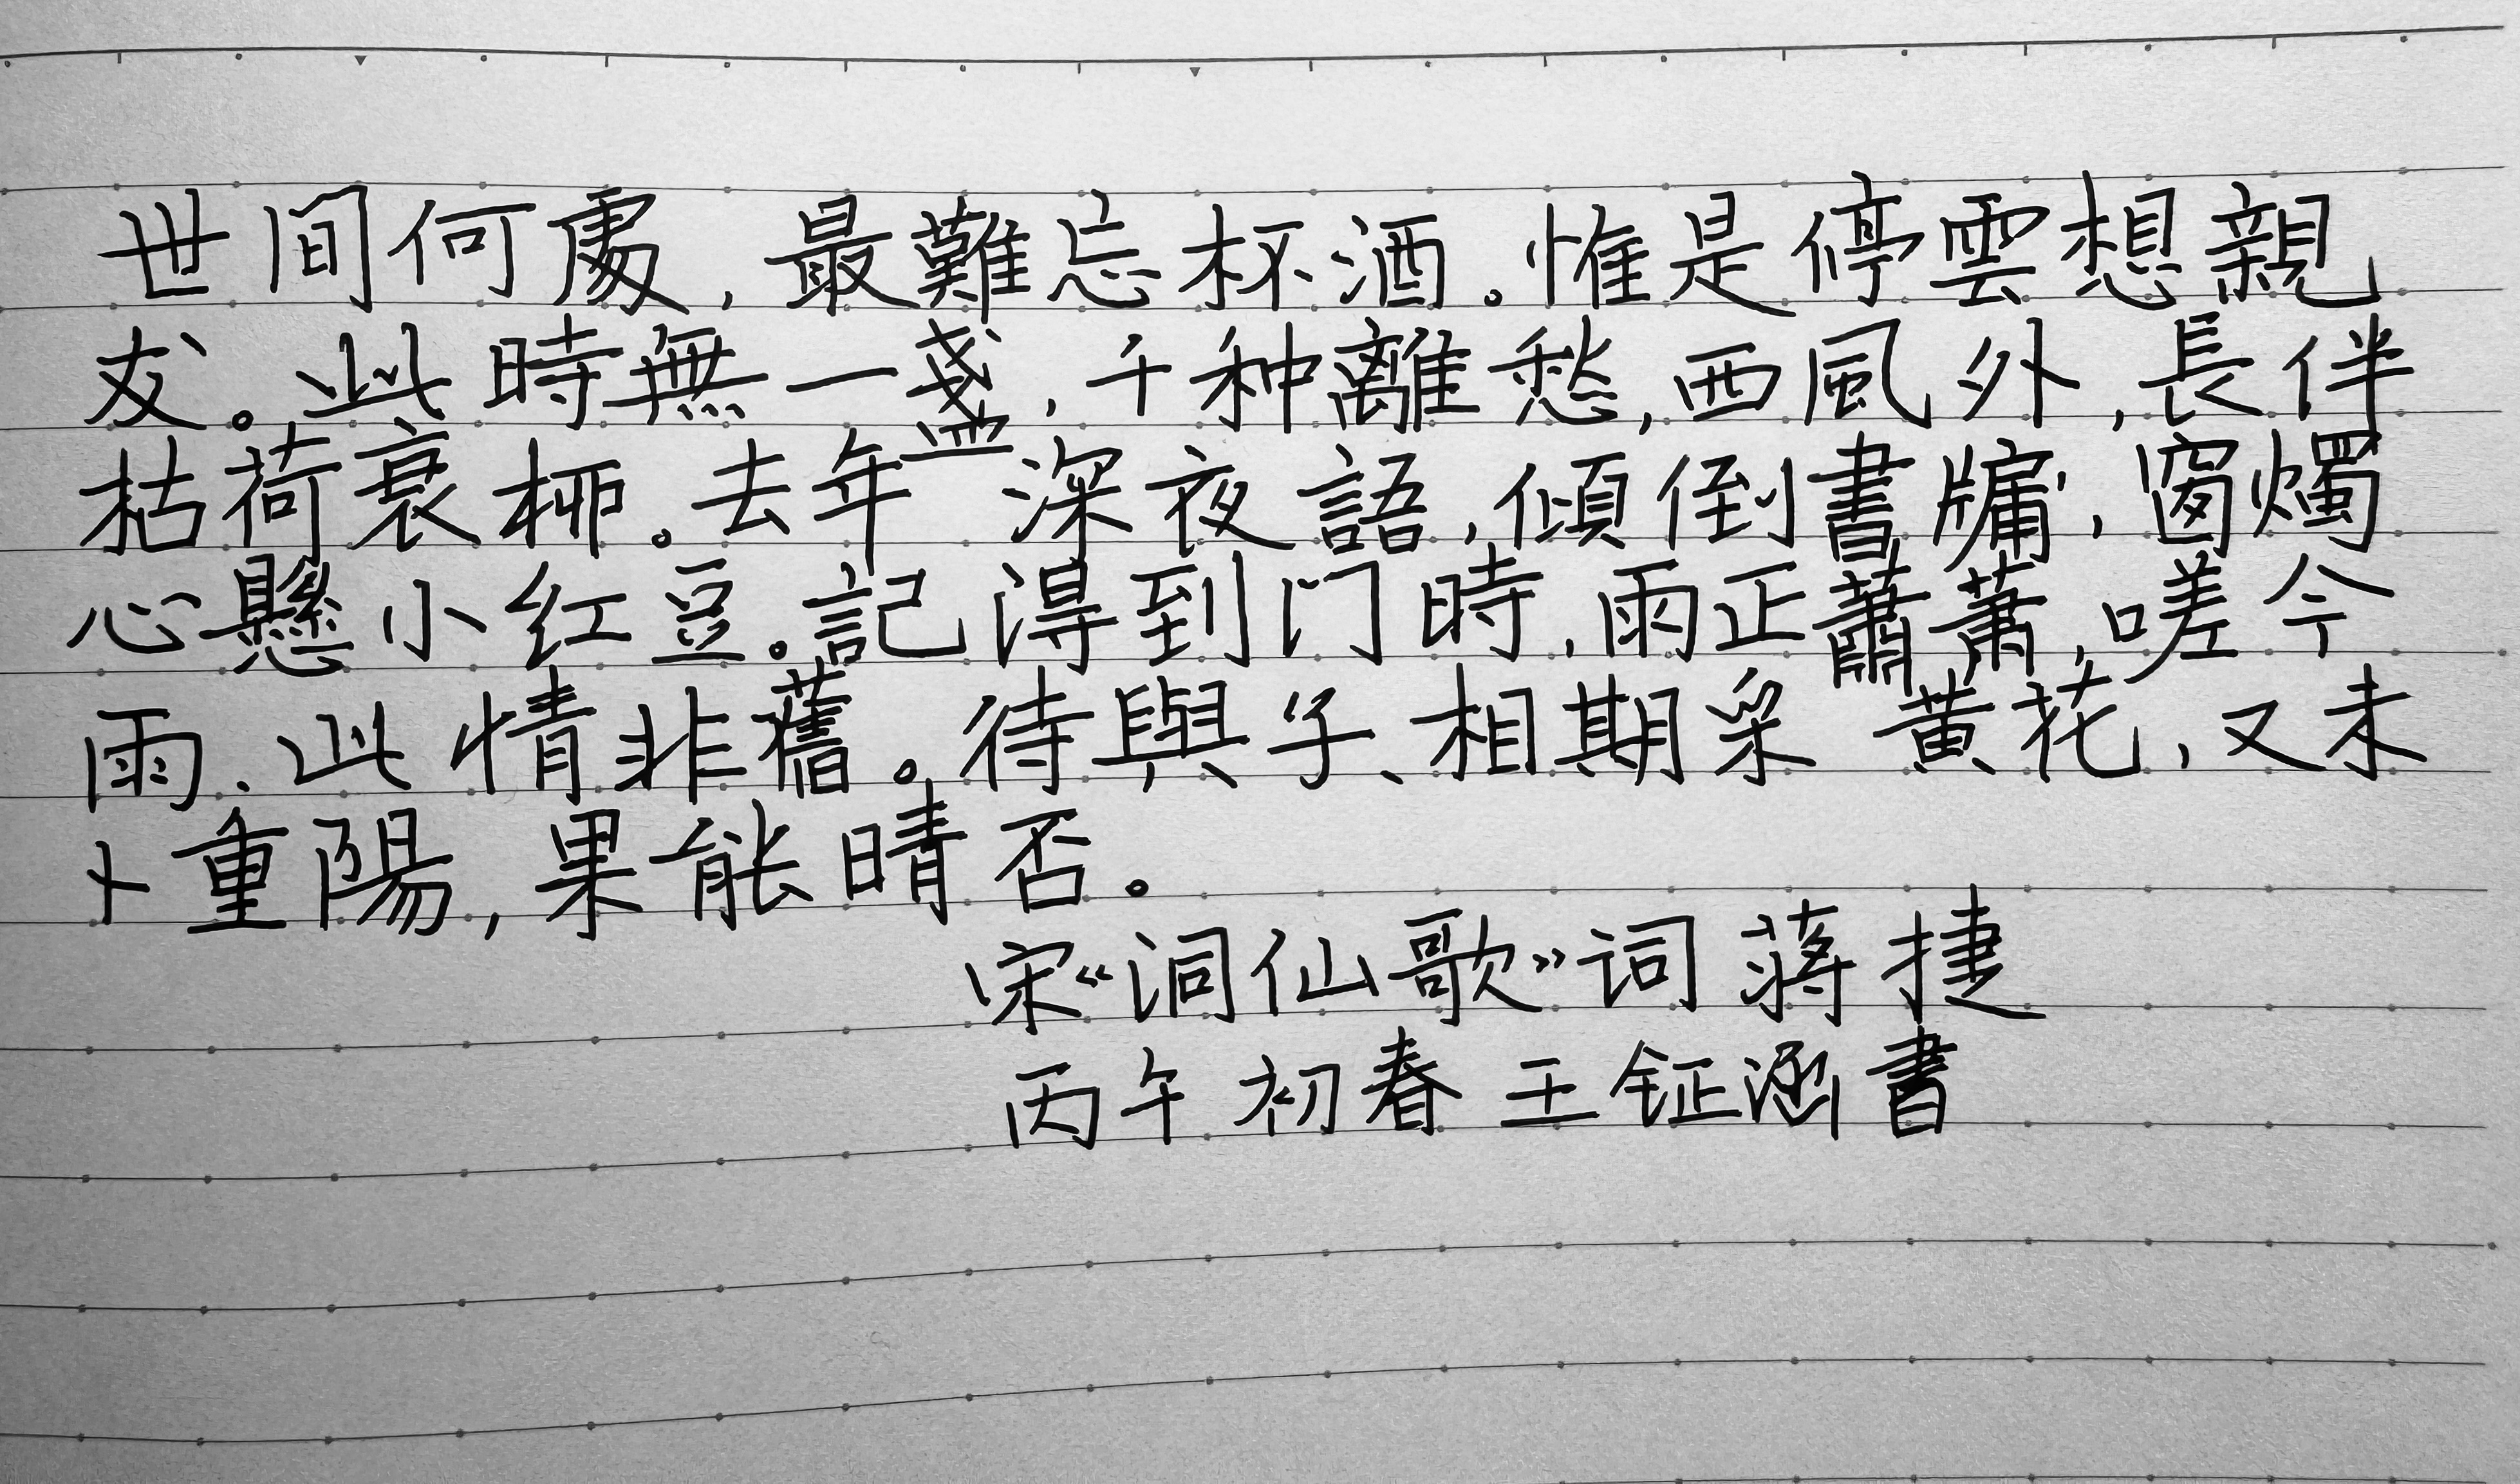 世间何處，最難忘杯酒。惟是停雲想親
友。此時無一盞，千种離愁，西風外，長伴
枯荷衰柳。去年深夜語，傾倒書牖，窗燭
心懸小红豆。記得到门時，雨正蕭蕭，嗟今
雨、此情非舊。待與子、相期采黃花，又未
卜重陽，果能晴否。
宋“洞仙歌”词 蔣捷
丙午初春 王钲涵書